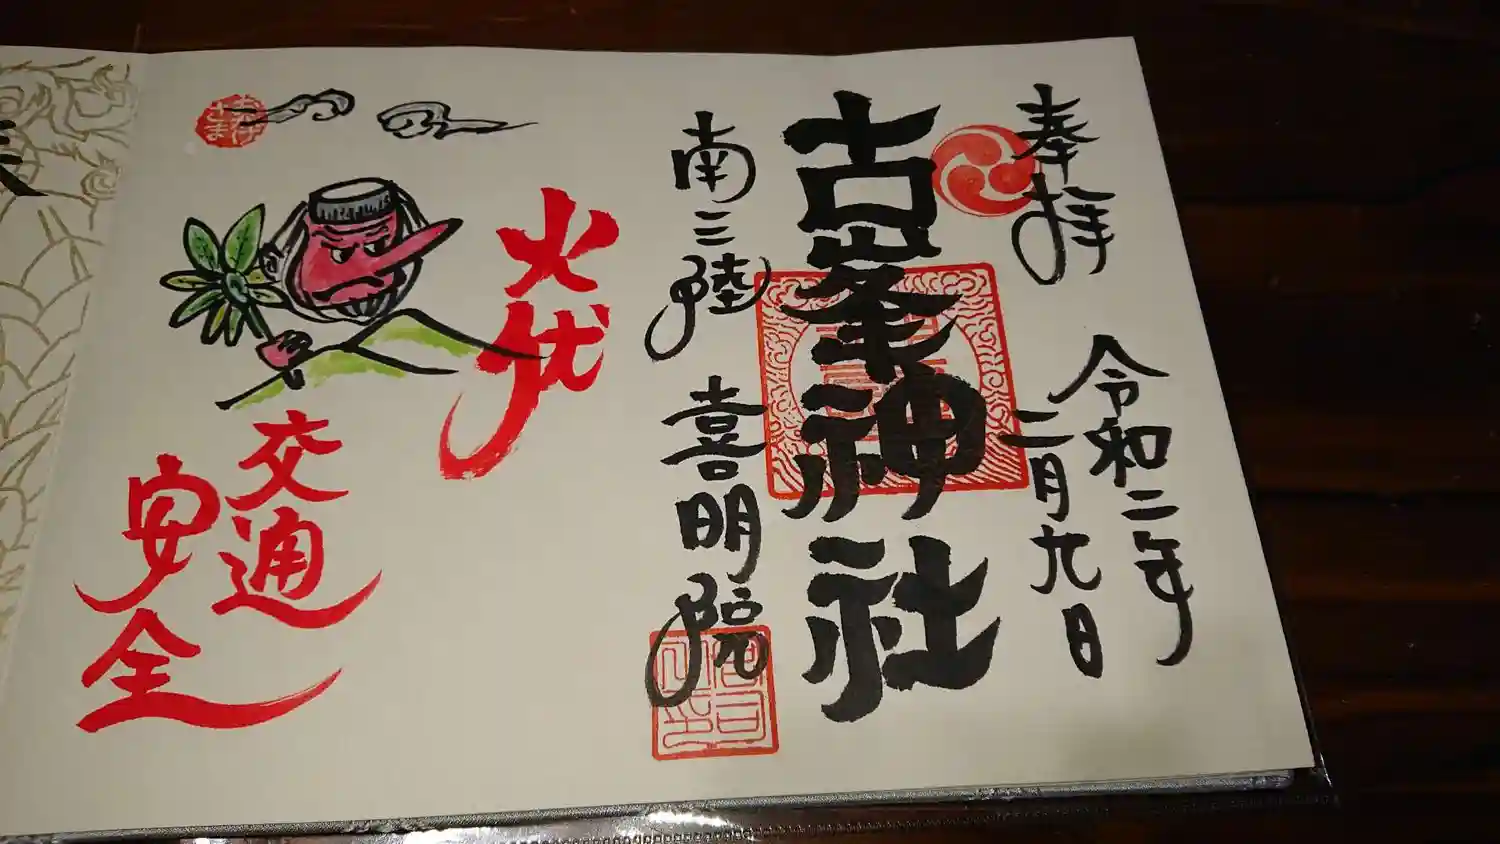 奉拝
令和二年
二月九日
古峯神社
南三陸
喜明院
火伏
交通
安全